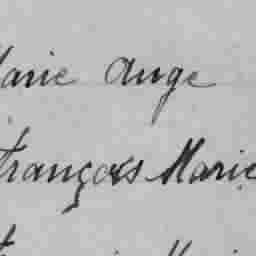 Marie Ange
François Marie